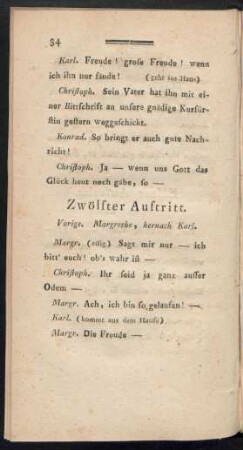 84
Karl. Freude! grose Freude! wenn
ich ihn nur fände! (geht ins Haus)
Christoph. Sein Vater hat ihn mit ei-
ner Bittschrift an unsere gnädige Kurfür-
stin gestern weggeschickt.
Konrad. So bringt er auch gute Nach-
richt!
Christoph. Ja — wenn uns Gott das
Glück heut noch gäbe, so —
Zwölfter Auftritt.
Vorige. Margrethe, hernach Karl.
Margr. (eilig) Sagt mir nur — ich
bitt' euch! ob's wahr ist —
Christoph. Ihr seid ja ganz ausser
Odem —
Margr. Ach, ich bin so gelaufen! —
Karl. (kommt aus dem Hause)
Margr. Die Freude —